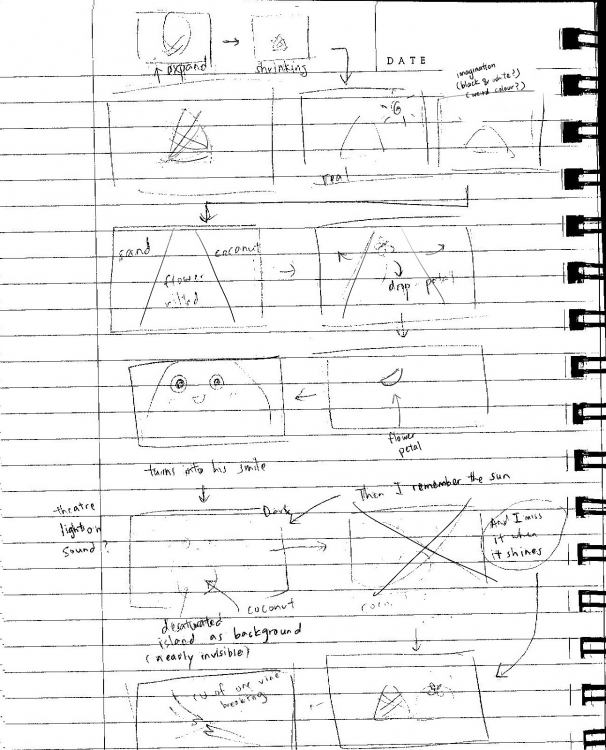 expand
shrinking
DATE
imagination
(black & white?)
(weird colour?)
real
sand
coconut
flower
wilted
drop petal
flower
petal
turns into his smile
Then I remember the sun
theatre
light on
sound?
Dark
And I miss
it when
it shines
coconut
corn
desaturated
island as background
(nearly invisible)
CU of one vine
breaking